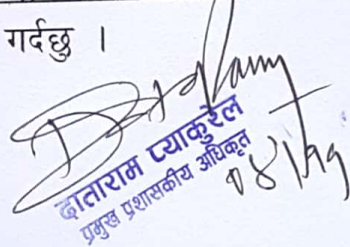 गर्दछु ।
दाताराम प्याकुरेल
प्रमुख प्रशासकीय अधिकृत